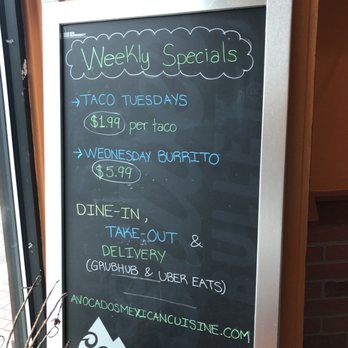 Weekly Specials
→ TACO TUESDAYS
$1.99 per taco
→ WEDNESDAY BURRITO
$5.99
DINE-IN,
TAKE-OUT &
DELIVERY
(GRUBHUB & UBER EATS)
AVOCADOSMEXICANCUISINE.COM